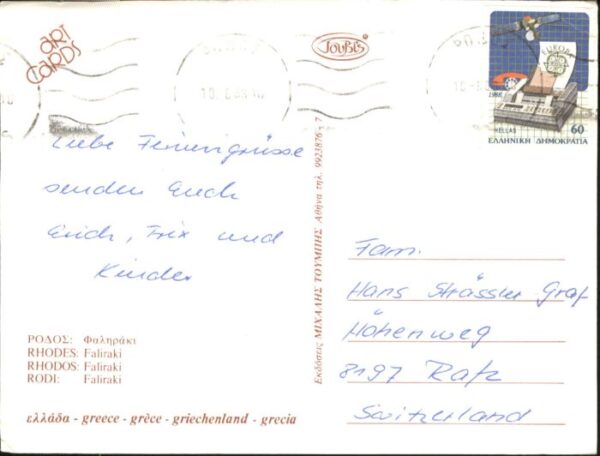 ART
CARDS
Τουμπής
EUROPA
1988
HELLAS 60
ΕΛΛΗΝΙΚΗ ΔΗΜΟΚΡΑΤΙΑ
Liebe Feriengrüsse
senden Euch
Erich, Trix und
Kinder
ΡΟΔΟΣ: Φαληράκι
RHODES: Faliraki
RHODOS: Faliraki
RODI: Faliraki
ελλάδα - greece - grèce - griechenland - grecia
Εκδόσεις ΜΙΧΑΛΗΣ ΤΟΥΜΠΗΣ Αθήνα τηλ. 9923876 - 7
Fam.
Hans Strässler Graf
Höhenweg
8197 Rafz
Switzerland